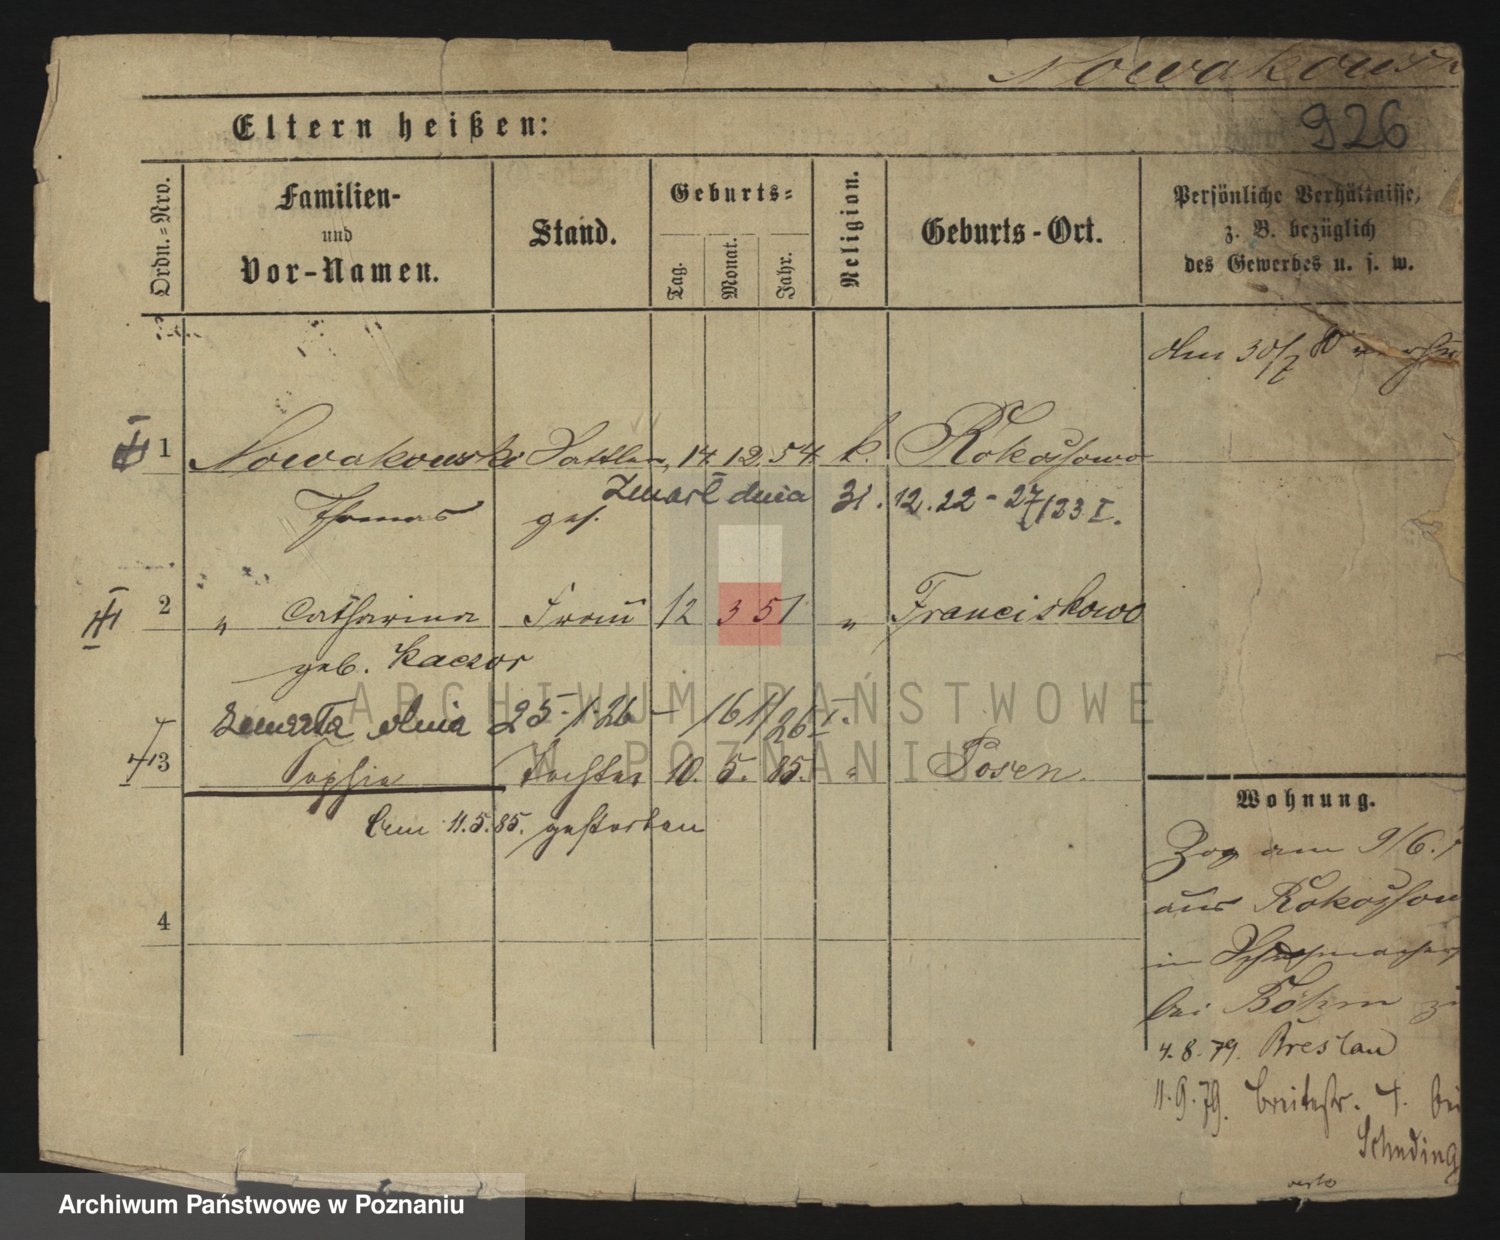 Nowakowsk
926
Eltern heißen:
Ordn.-Nro.
Familien-
und
Vor-Namen.
Stand.
Geburts-
Tag.
Monat.
Jahr.
Religion.
Geburts-Ort.
Persönliche Verhältnisse,
z. B. bezüglich
des Gewerbes u. s. w.
den 30/7 80
1 Nowakowski Sattler, 14. 12. 54. k. Rokossowo
Thomas ges. zmarł dnia 31. 12. 22 - 27/1 23 I.
2 " Catharina Frau 12 3 51 " Franciskowo
geb. Kaczor
Zmarła dnia 25-1-26 - 16 1/26 I.
3 Sophie Tochter 10. 5. 85. " Posen.
Am 11.5.85. gestorben
4
Wohnung.
Zog am 9/6.
aus Rokossow
in
bei Böhm
4. 8. 79. Breslau
11. 9. 79. Breitestr. 4. bei
Scheding
verte
ARCHIWUM PAŃSTWOWE
W POZNANIU
Archiwum Państwowe w Poznaniu